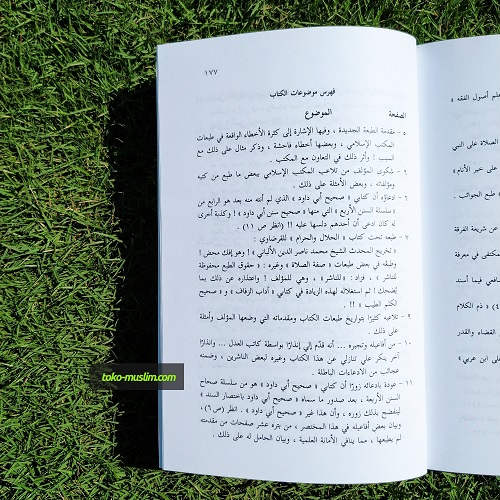 ١٧٧
فهرس موضوعات الكتاب
الصفحة الموضوع
٥ - مقدمة الطبعة الجديدة ، وفيها الإشارة إلى كثرة الأخطاء الواقعة في طبعات
المكتب الإسلامي ، وبعضها أخطاء فاحشة ، وذكر مثال على ذلك مع
السبب ! وأثر ذلك في التعاون مع المكتب .
٩ - شكوى المؤلف من تلاعب المكتب الإسلامي ببعض ما طبع من كتبه
ومؤلفاته ، وبعض الأمثلة على ذلك .
٦ - ادعاؤه أن كتابي « صحيح أبي داود » الذي لم أنته منه بعد هو الرابع من
« سلسلة السنن الأربع » التي منها « صحيح سنن أبي داود » ! وكذبة أخرى
له كان ادعى أن أحدهم دلسها عليه !! (انظر ص ١١) .
٧ - طبعه تحت كتاب « الحلال والحرام » للقرضاوي :
« تخريج المحدث الشيخ محمد ناصر الدين الألباني » ! وهو إفك محض !
وطبعه في بعض طبعات « صفة الصلاة » وغيره : « حقوق الطبع محفوظة
للناشر » ، فزاد : « للناشر » ، وهي للمؤلف ! واعتذاره عن ذلك بما
يُضحك ! ثم استغلاله لهذه الزيادة في كتابي « آداب الزفاف » و « صحيح
الكلم الطيب » !!
٩ - تلاعبه كثيرًا بتواريخ طبعات الكتاب ومقدماته التي وضعها المؤلف وأمثلة
على ذلك .
١٠ - من أفاعيله وتجبره ... أنه قدّم إلي إنذارًا بواسطة كاتب العدل ... وإنذارًا
آخر ينكر علي تنازلي عن هذا الكتاب وغيره لبعض الناشرين ، وضمنه
عجائب من الادعاءات الباطلة .
١١ - عودة بادعائه زورًا أن كتابي « صحيح أبي داود » هو من سلسلة صحاح
السنن الأربعة ، بعد صدور ما سماه « صحيح أبي داود باختصار السند »
ليفتضح بذلك زوره ، وأن هذا غير « صحيح أبي داود » . انظر (ص ٦)
وبيان بعض أفاعيله في هذا المختصر ، من بتره عشر صفحات من مقدمته
لم يطبعها ، مما ينافي الأمانة العلمية ، وبيان الحامل له على ذلك .
علم أصول الفقه »
الصلاة على النبي
على خير الأنام »
» طبع الجوائب .
عن شريعة الفرقة
لمكتفى في معرفة
شافعي فيما أسند
٤) « ذم الكلام
القضاء والقدر
على ابن عربي »
toko-muslim.com